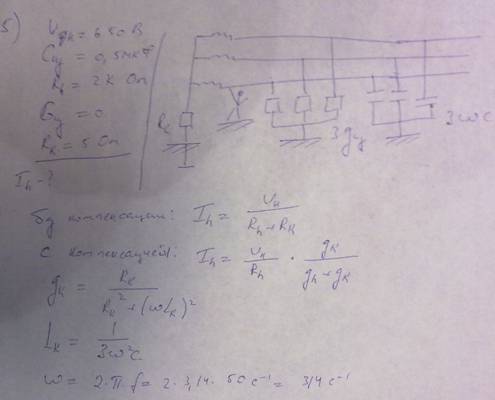 5)
U = 650 В
C = 0,5 мкФ
R = 2 к Оm
G = 0
R_k = 5 Оm
I_h - ?
R_k
3g
3ωC
без компенсации: I_h = U / (R_h + R_k)
с компенсацией: I_h = U / R_h · g_k / (g_h + g_k)
g_k = R_k / (R_k² + (ωL_k)²)
L_k = 1 / (3ω²C)
ω = 2·π·f = 2·3,14·50 с⁻¹ = 314 с⁻¹